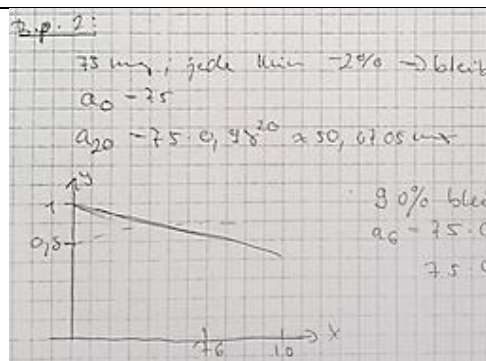 B.p. 2:
75 mg ; jede Min -2% → bleib
a0 = 75
a20 = 75 · 0,98^20 ≈ 50,0705 mg
y
1
0,5
76
10
x
90% blei
a6 = 75 · 0
75 · 0